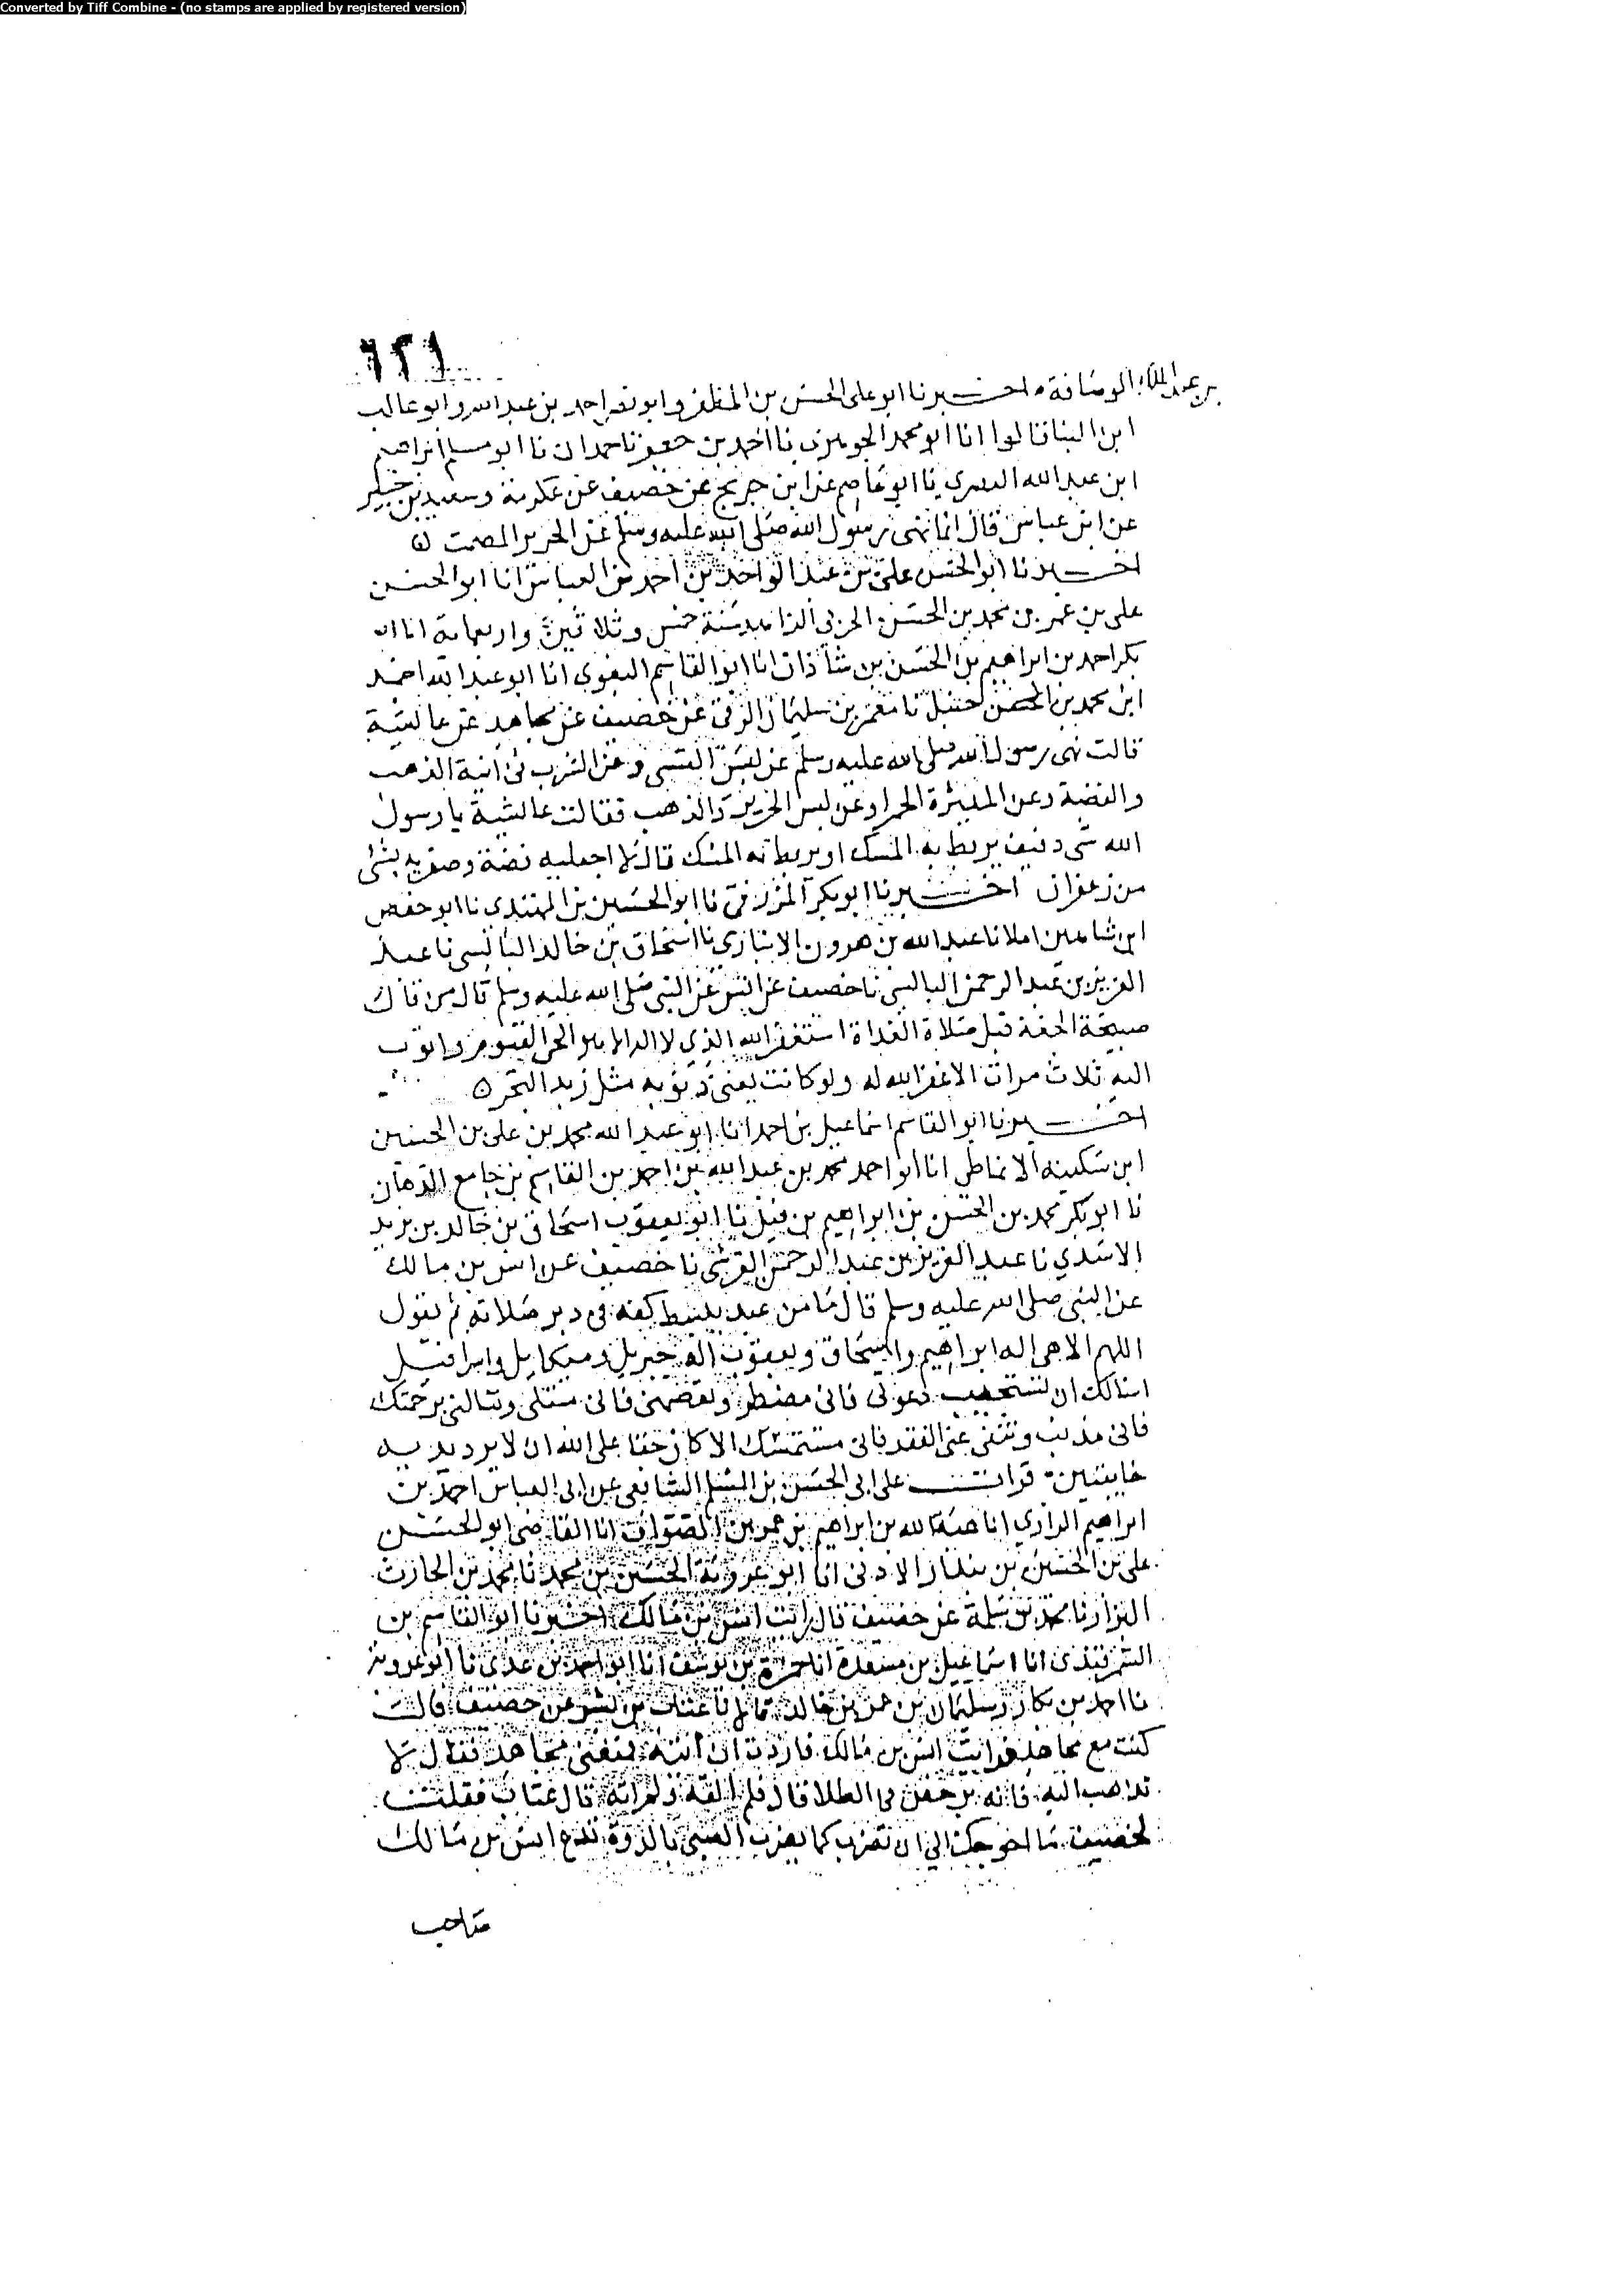 Converted by Tiff Combine - (no stamps are applied by registered version)
٦٢١
بن عبد الملك الرصافة اخبرنا ابو على الحسن بن المظفر وابو نصر احمد بن عبد الله وابو غالب
ابن البنا قالوا انا ابو محمد الجوهري نا احمد بن جعفر نا حمدان نا ابو مسلم ابراهيم
ابن عبد الله البصري نا ابو عاصم عن ابن جريج عن خصيف عن عكرمة وسعيد بن جبير
عن ابن عباس قال انما نهى رسول الله صلى الله عليه وسلم عن الحرير المصمت
اخبرنا ابو الحسن على بن عبد الواحد بن احمد بن العباس انا ابو الحسن
على بن عمر بن محمد بن الحسن الحربي الزاهد سنة خمس وثلاثين واربعماية انا ابو
بكر احمد بن ابراهيم بن الحسن بن شاذان انا ابو القاسم البغوي انا ابو عبد الله احمد
ابن محمد بن حنبل نا معمر بن سليمان الرقى عن خصيف عن مجاهد عن عايشة
قالت نهى رسول الله صلى الله عليه وسلم عن لبس القسى وعن الشرب فى انية الذهب
والفضة وعن الميثرة الحمرا وعن لبس الحرير والذهب فقالت عايشة يا رسول
الله شى دفيف يربط به المسك او يربط به المسك قال لا اجعليه فضة وصفريه بشى
من زعفران اخبرنا ابو بكر المزرفى نا ابو الحسين بن المهتدي نا ابو حفص
ابن شاهين املا نا عبد الله بن هرون الانباري نا اسحاق بن خالد البالسى نا عبد
العزيز بن عبد الرحمن البالسى نا خصيف عن انس عن النبى صلى الله عليه وسلم قال من قال
صبيحة الجمعة قبل صلاة الغداة استغفر الله الذي لا اله الا هو الحى القيوم واتوب
اليه ثلاث مرات الا غفر الله له ولو كانت يعنى ذنوبه مثل زبد البحر ه
اخبرنا ابو القاسم اسماعيل بن احمد انا ابو عبد الله محمد بن على بن الحسين
ابن سكينة الانماطى انا ابو احمد محمد بن عبد الله بن احمد بن القاسم بن جامع الدهان
نا ابو بكر محمد بن الحسن بن ابراهيم بن فيل نا ابو يعقوب اسحاق بن خالد بن يزيد
الاسدي نا عبد العزيز بن عبد الرحمن القرشى نا خصيف عن انس بن مالك
عن النبى صلى الله عليه وسلم قال ما من عبد يبسط كفه فى دبر صلاته ثم يقول
اللهم الاهى اله ابراهيم واسحاق ويعقوب اله جبريل وميكايل واسرافيل
اسالك ان تستجيب دعوتى فانى مضطر وتعصمنى فانى مبتلى وتنالنى برحمتك
فانى مذنب وتنفى عنى الفقر فانى مستمسك الا كان حقا على الله ان لا يرد يديه
خايبتين قرات على ابى الحسن بن المسلم الشافعى عن ابى العباس احمد بن
ابراهيم الرازي انا هبة الله بن ابراهيم بن عمر بن الصواف انا القاضى ابو الحسن
على بن الحسين بن بندار الاذنى انا ابو عروبة الحسين بن محمد نا محمد بن الحارث
البزار نا محمد بن سلمة عن خصيف قال رايت انس بن مالك اخبرنا ابو القاسم بن
السمرقندى انا اسماعيل بن مسعدة انا حمزة بن يوسف انا ابو احمد بن عدى نا ابو عروبة
نا احمد بن بكار وسليمان بن عمر بن خالد قالا نا عتاب بن بشر عن خصيف قال
كنت مع مجاهد فرايت انس بن مالك فاردت ان اتيه فمنعنى مجاهد فقال لا
تذهب اليه فانه يرخص فى الطلا قال فلم القه ولم اته قال عتاب فقلت
لخصيف ما احوجك الى ان تضرب كما يضرب الصبى بالدرة تدع انس بن مالك
صاحب